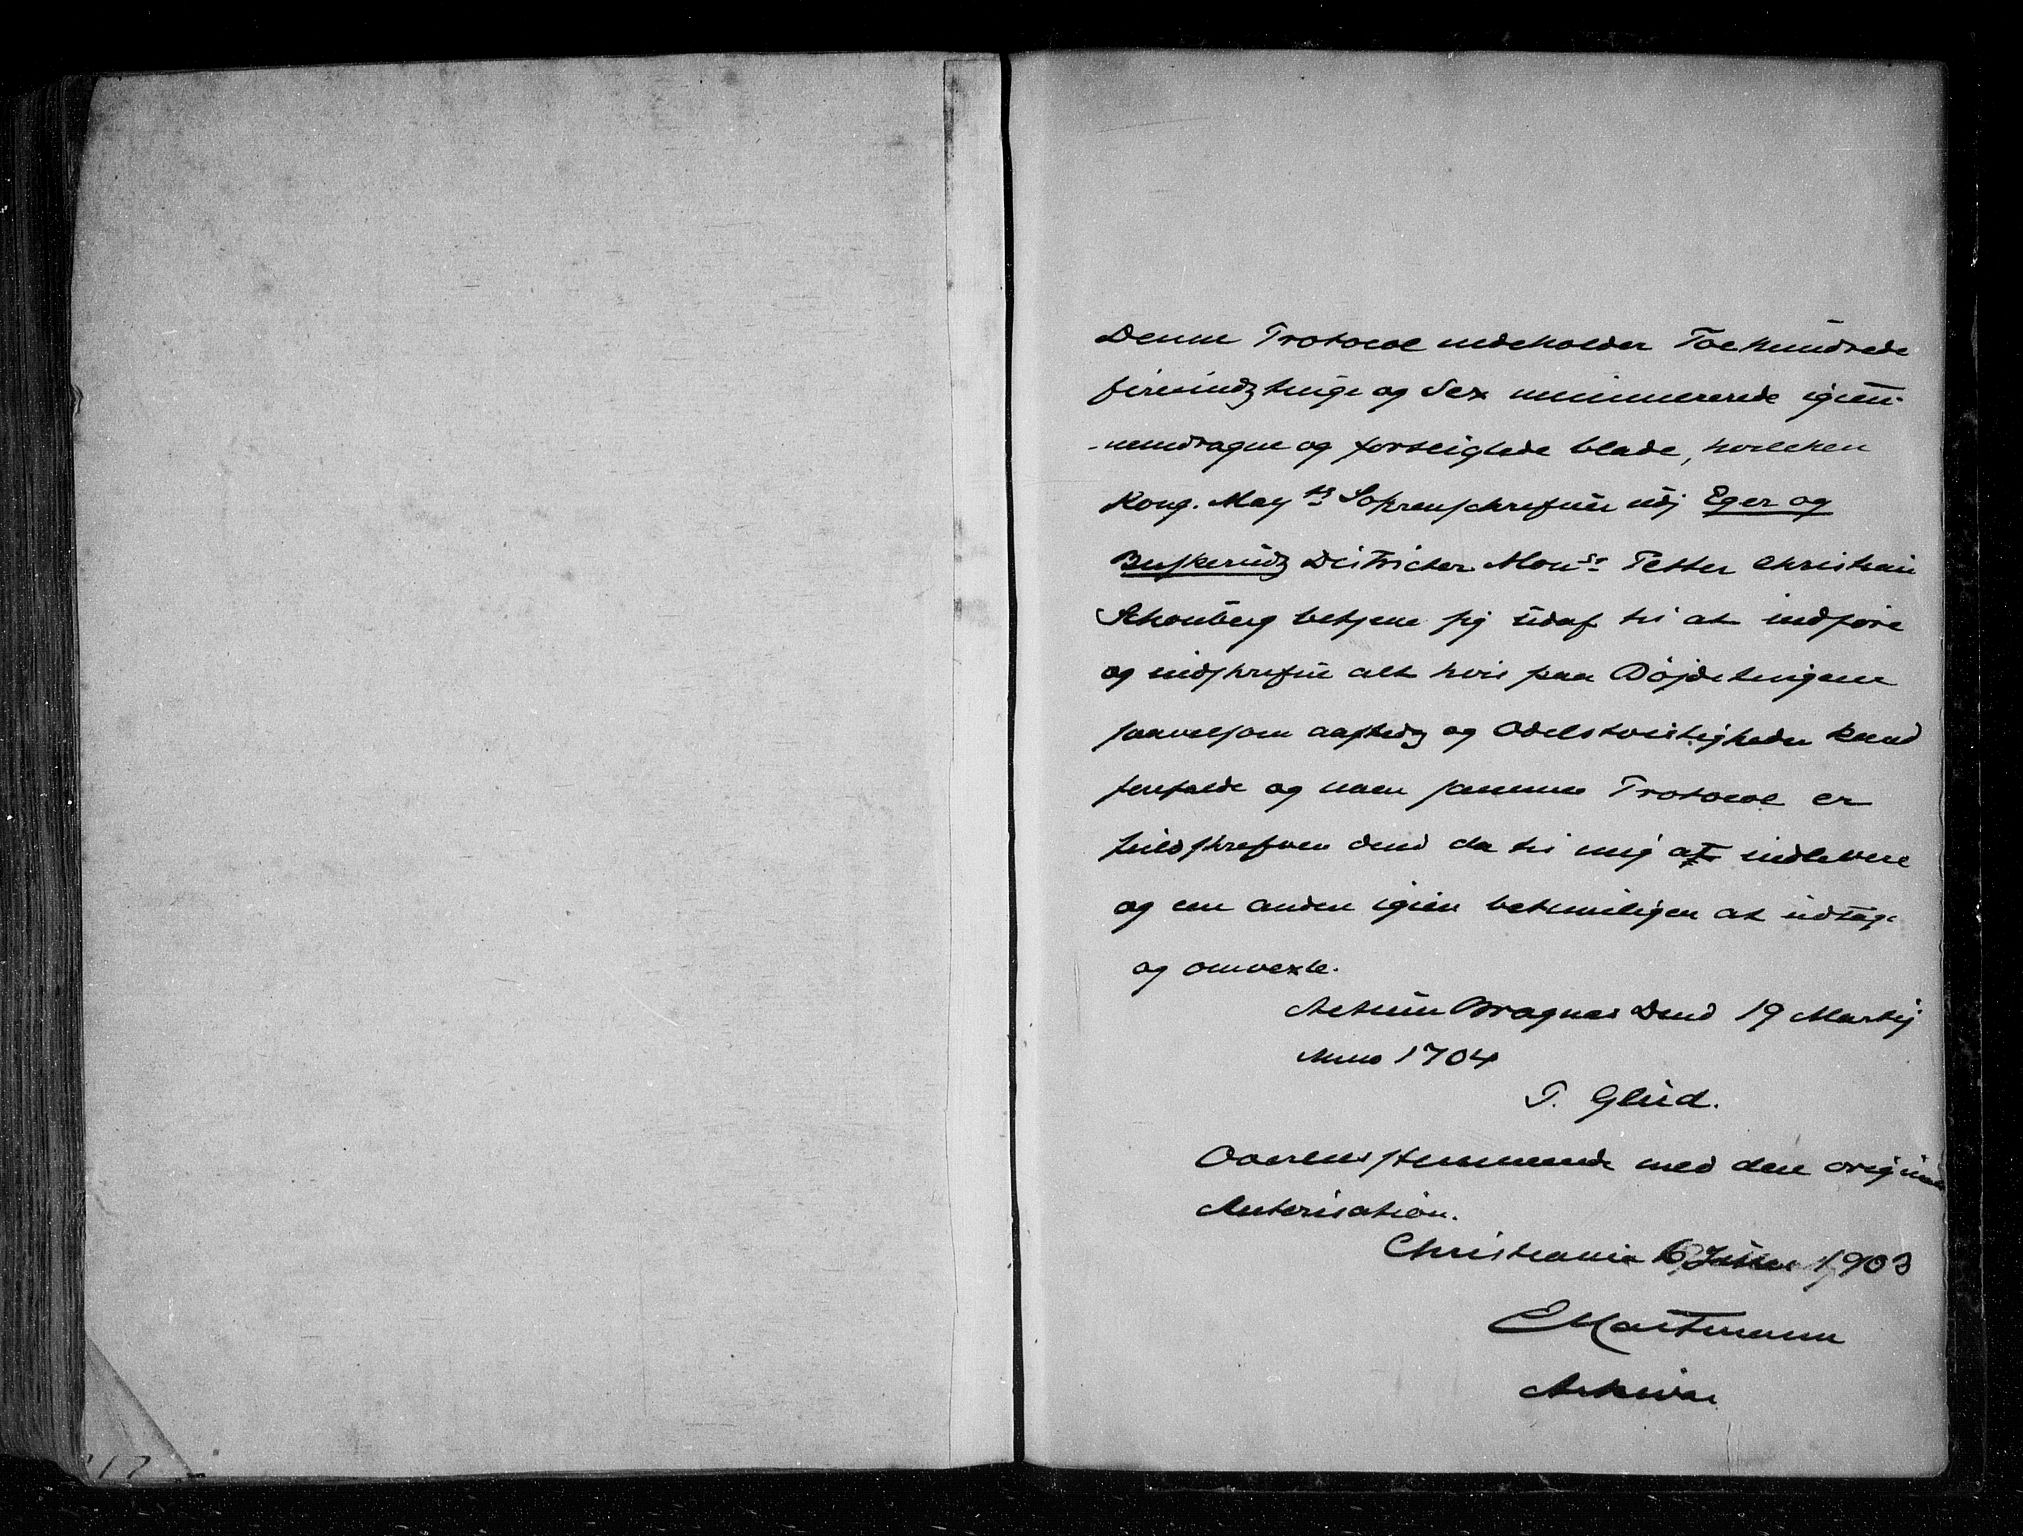 Denne Protocol indeholder Toehundrede
firesindztiuge og Sex numinererede igien-
-nemdragne og forseiglede blade, hvilchen
Kong. May ts Sorenschrefuer udj Eger og
Buskerudz Districter Mons r Petter Christian
Schonberg betjene sig udaf til at indføre
og indskrefue alt hvis paa Bøjdetingene
saavelsom aastedz og Odelstvistigheder kand
forfalde og naar samme Protocol er
fuldskrefven dend da til mig at indlevere
og een anden igien betimeligen at udtage
og omvexle.
Actum Bragnes Dend 19 Martij
Anno 1704
T. Glud.
Overensstemmende med den originale
Autorisation.
Christiania 6 1903
E Hartmann
Arkivar
217